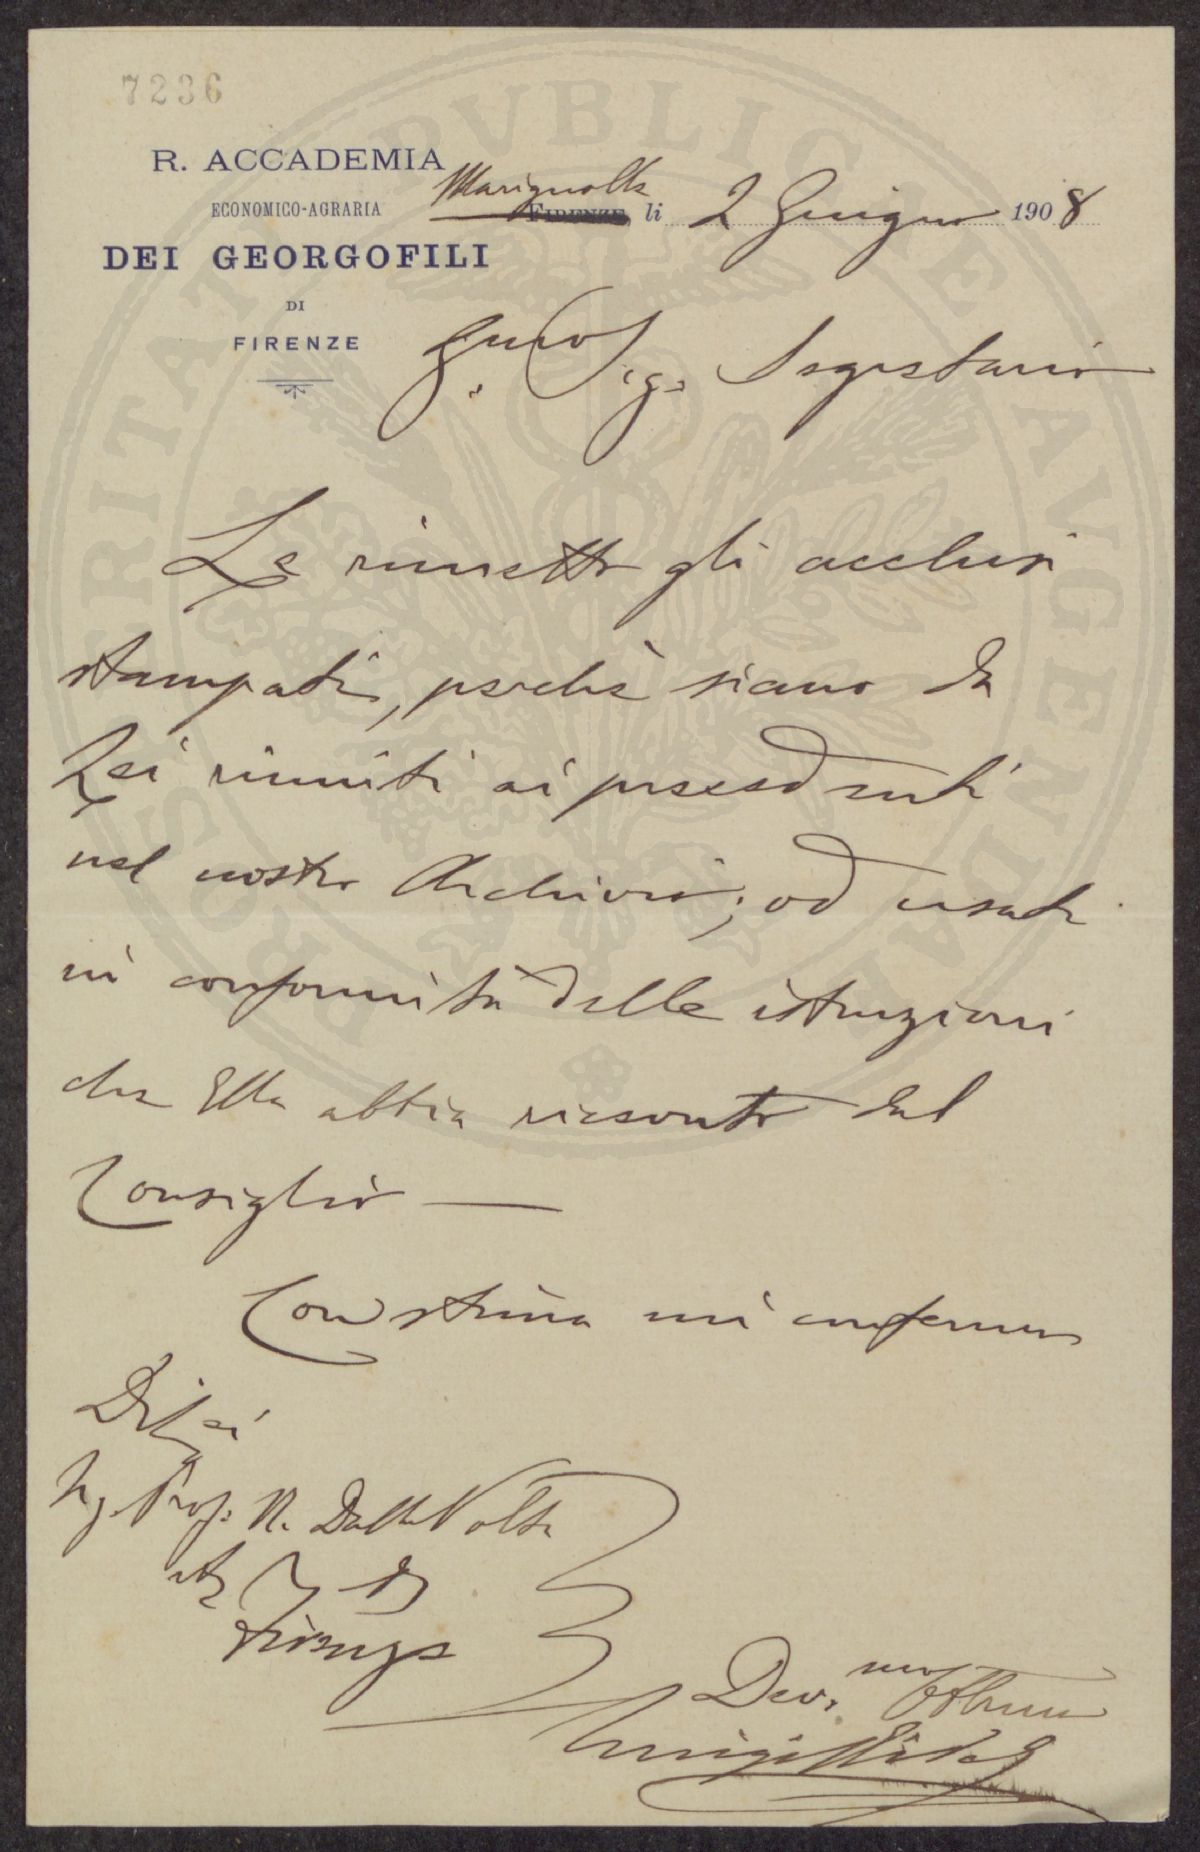 7236
R. ACCADEMIA
ECONOMICO-AGRARIA
DEI GEORGOFILI
DI
FIRENZE
Marignolle
FIRENZE, li 2 Giugno 1908
Sig. Segretario
Le rimetto gli acclusi
stampati, perchè siano da
Lei riuniti ai precedenti
nel nostro Archivio; od usati
in conformità delle istruzioni
che Ella abbia ricevuto dal
Consiglio —
Con stima mi confermo
Di Lei
Sig. Prof. R. Dalla Volta
Firenze
Dev.mo Obbmo
Luigi
PROSPERITATI PVBLICAE AVGENDAE